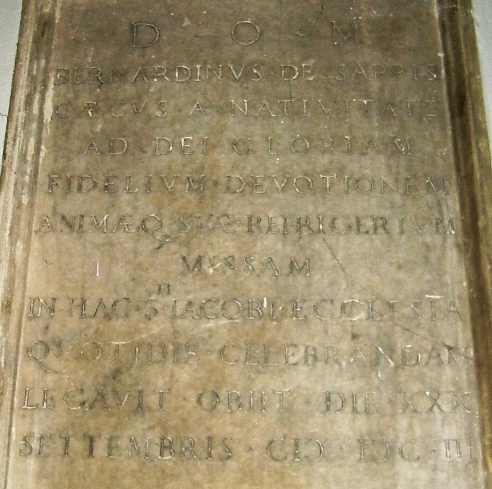 D · O · M
BERNARDINVS · DE · SAPPIS
CÆCVS · A · NATIVITATE
AD · DEI · GLORIAM
FIDELIVM · DEVOTIONEM
ANIMÆQ · SVÆ · REFRIGERIVM
MISSAM
IN · HAC · S · TI · IACOBI · ECCLESIA
QVOTIDIE · CELEBRANDAM
LEGAVIT · OBIIT · DIE · XXX
SETTEMBRIS · CIƆ · IƆC · III